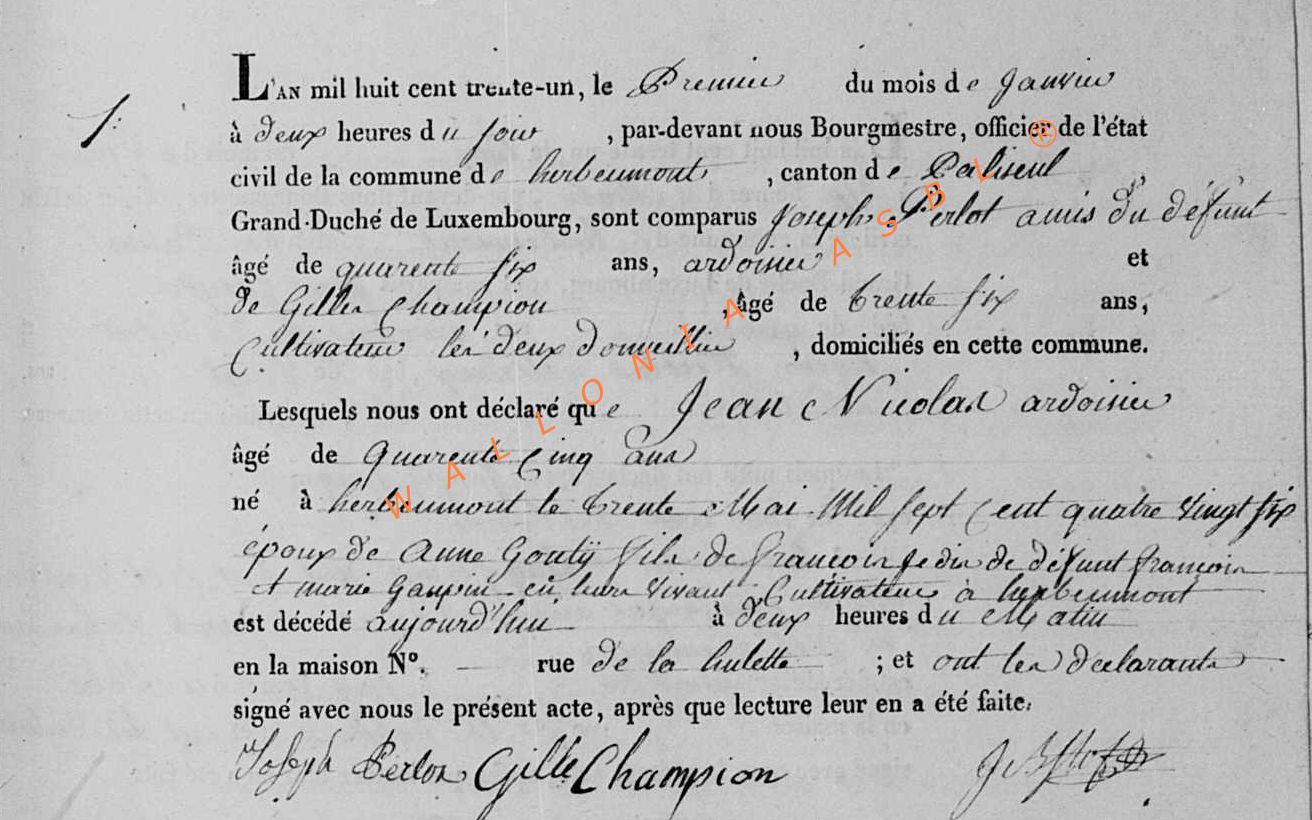 1.
L'AN mil huit cent trente-un, le Premier du mois de Janvier
à deux heures du jour , par-devant nous Bourgmestre, officier de l'état
civil de la commune de herbeumont , canton de Paliseul ,
Grand-Duché de Luxembourg, sont comparus Joseph Perlot amis du défunt
âgé de quarente six ans, ardoisier et
de Gille Champion , âgé de trente six ans,
Cultivateur les deux domicilier , domiciliés en cette commune.
Lesquels nous ont déclaré que Jean Nicolas ardoisier
âgé de quarente Cinq ans
né à herbeumont le trente Mai Mil sept Cent quatre vingt six
époux de anne Gouty fils de francoin de défunt francoin
et marie en leurs vivant Cultivateur à herbeumont
est décédé aujourd'hui à deux heures du Matin
en la maison N°. — rue de la hulette ; et ont les déclarants
signé avec nous le présent acte, après que lecture leur en a été faite.
Joseph Perlot Gille Champion
WALLONIA ASBL ®